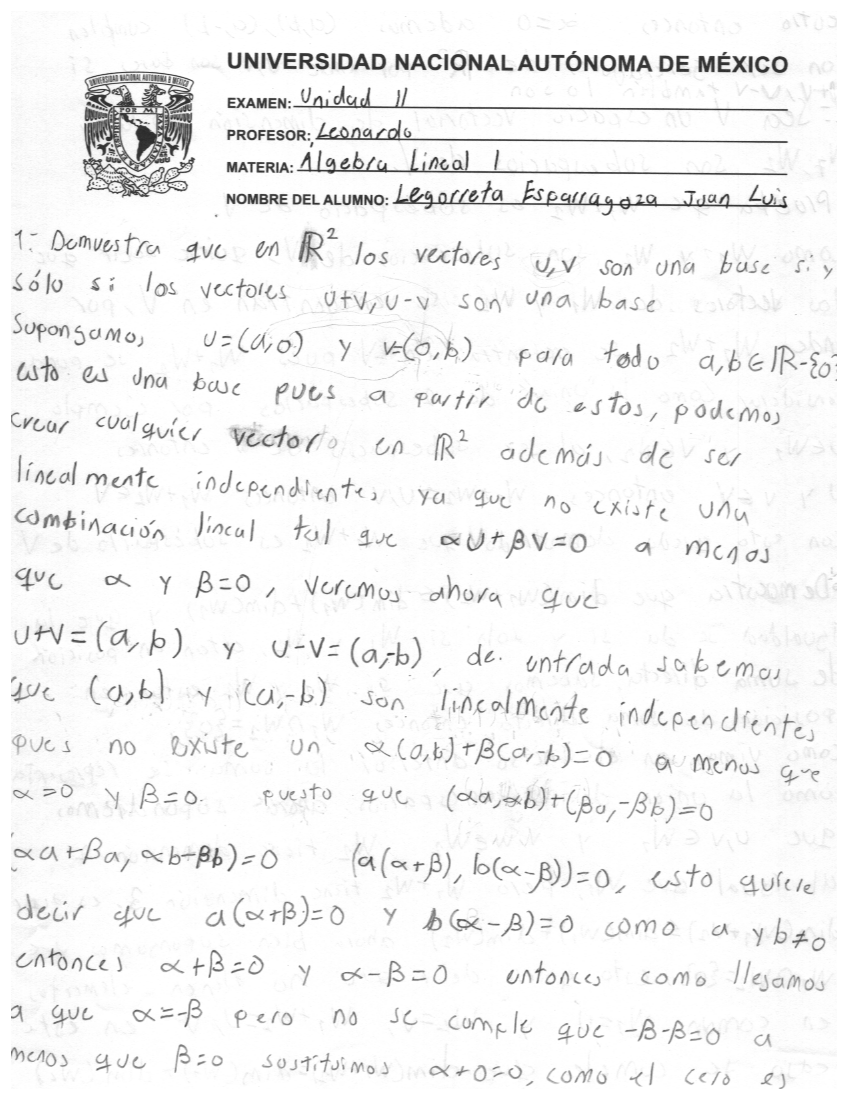 UNIVERSIDAD NACIONAL AUTÓNOMA DE MÉXICO
EXAMEN: Unidad II
PROFESOR: Leonardo
MATERIA: Algebra Lineal 1
NOMBRE DEL ALUMNO: Legorreta Esparragoza Juan Luis
1.- Demuestra que en ℝ² los vectores u,v son una base si y
sólo si los vectores u+v, u-v son una base
Supongamos u=(a,0) y v=(0,b) para todo a,b∈ℝ-{0}
esto es una base pues a partir de estos, podemos
crear cualquier vector en ℝ² además de ser
linealmente independientes ya que no existe una
combinación lineal tal que αu+βv=0 a menos
que α y β=0, veremos ahora que
u+v=(a,b) y u-v=(a,-b), de entrada sabemos
que (a,b) y (a,-b) son linealmente independientes
pues no existe un α(a,b)+β(a,-b)=0 a menos que
α=0 y β=0 puesto que (αa,αb)+(βa,-βb)=0
(αa+βa, αb-βb)=0 (a(α+β), b(α-β))=0, esto quiere
decir que a(α+β)=0 y b(α-β)=0 como a y b≠0
entonces α+β=0 y α-β=0 entonces como llegamos
a que α=-β pero no se cumple que -β-β=0 a
menos que β=0 sustituimos α+0=0, como el cero es